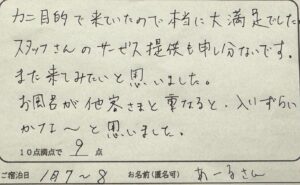 カニ目的で来ていたので本当に大満足でした
スタッフさんのサービス提供も申し分ないです。
また来てみたいと思いました。
お風呂が他客さまと重なると、入りずらい
かな〜と思いました。
10点満点で 9 点
ご宿泊日 1月7〜8 お名前(匿名可) あーるさん